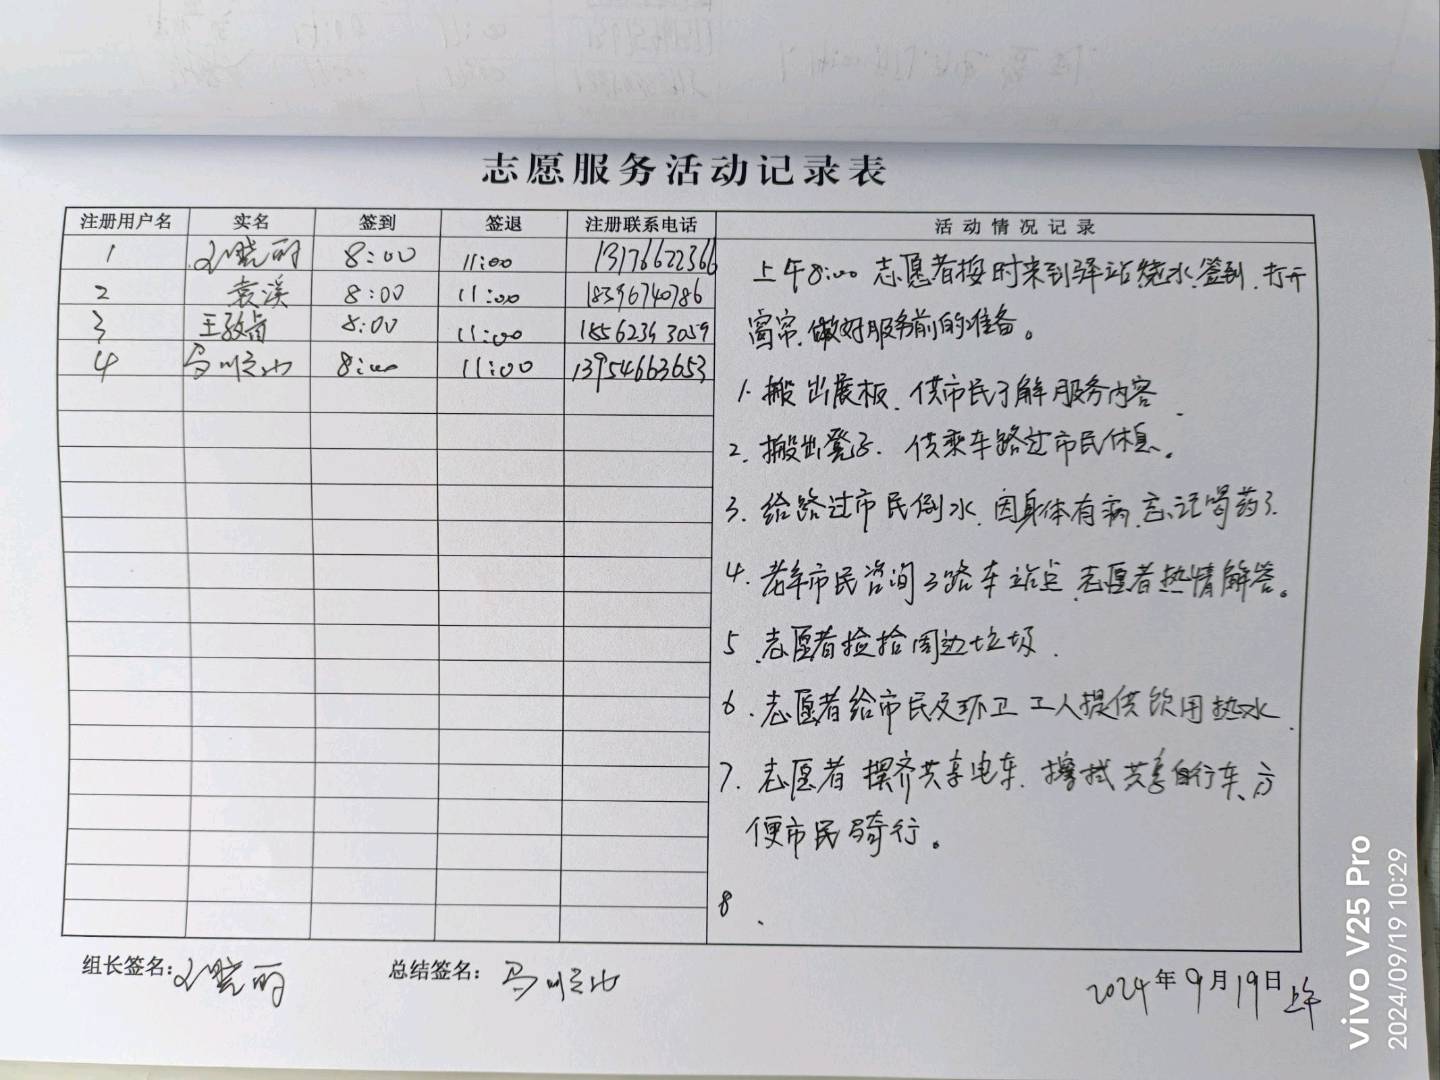 志愿服务活动记录表
注册用户名 实名 签到 签退 注册联系电话 活动情况记录
1 刘晓丽 8:00 11:00 13176622366
2 袁溪 8:00 11:00 18396740786
3 王 8:00 11:00 18562343059
4 马顺山 8:00 11:00 13954663653
上午8:00 志愿者按时来到驿站烧水、签到、打开
窗帘、做好服务前的准备。
1. 搬出展板、供市民了解服务内容、
2. 搬出凳子、供乘车路过市民休息。
3. 给路过市民倒水、因身体有病、忘记喝药了.
4. 老年市民咨询3路车站点、志愿者热情解答。
5、志愿者捡拾周边垃圾.
6、志愿者给市民及环卫工人提供饮用热水、
7. 志愿者摆齐共享电车、擦拭共享自行车、方
便市民骑行。
8、
组长签名:刘晓丽 总结签名:马顺山 2024年9月19日上午
vivo V25 Pro
2024/09/19 10:29